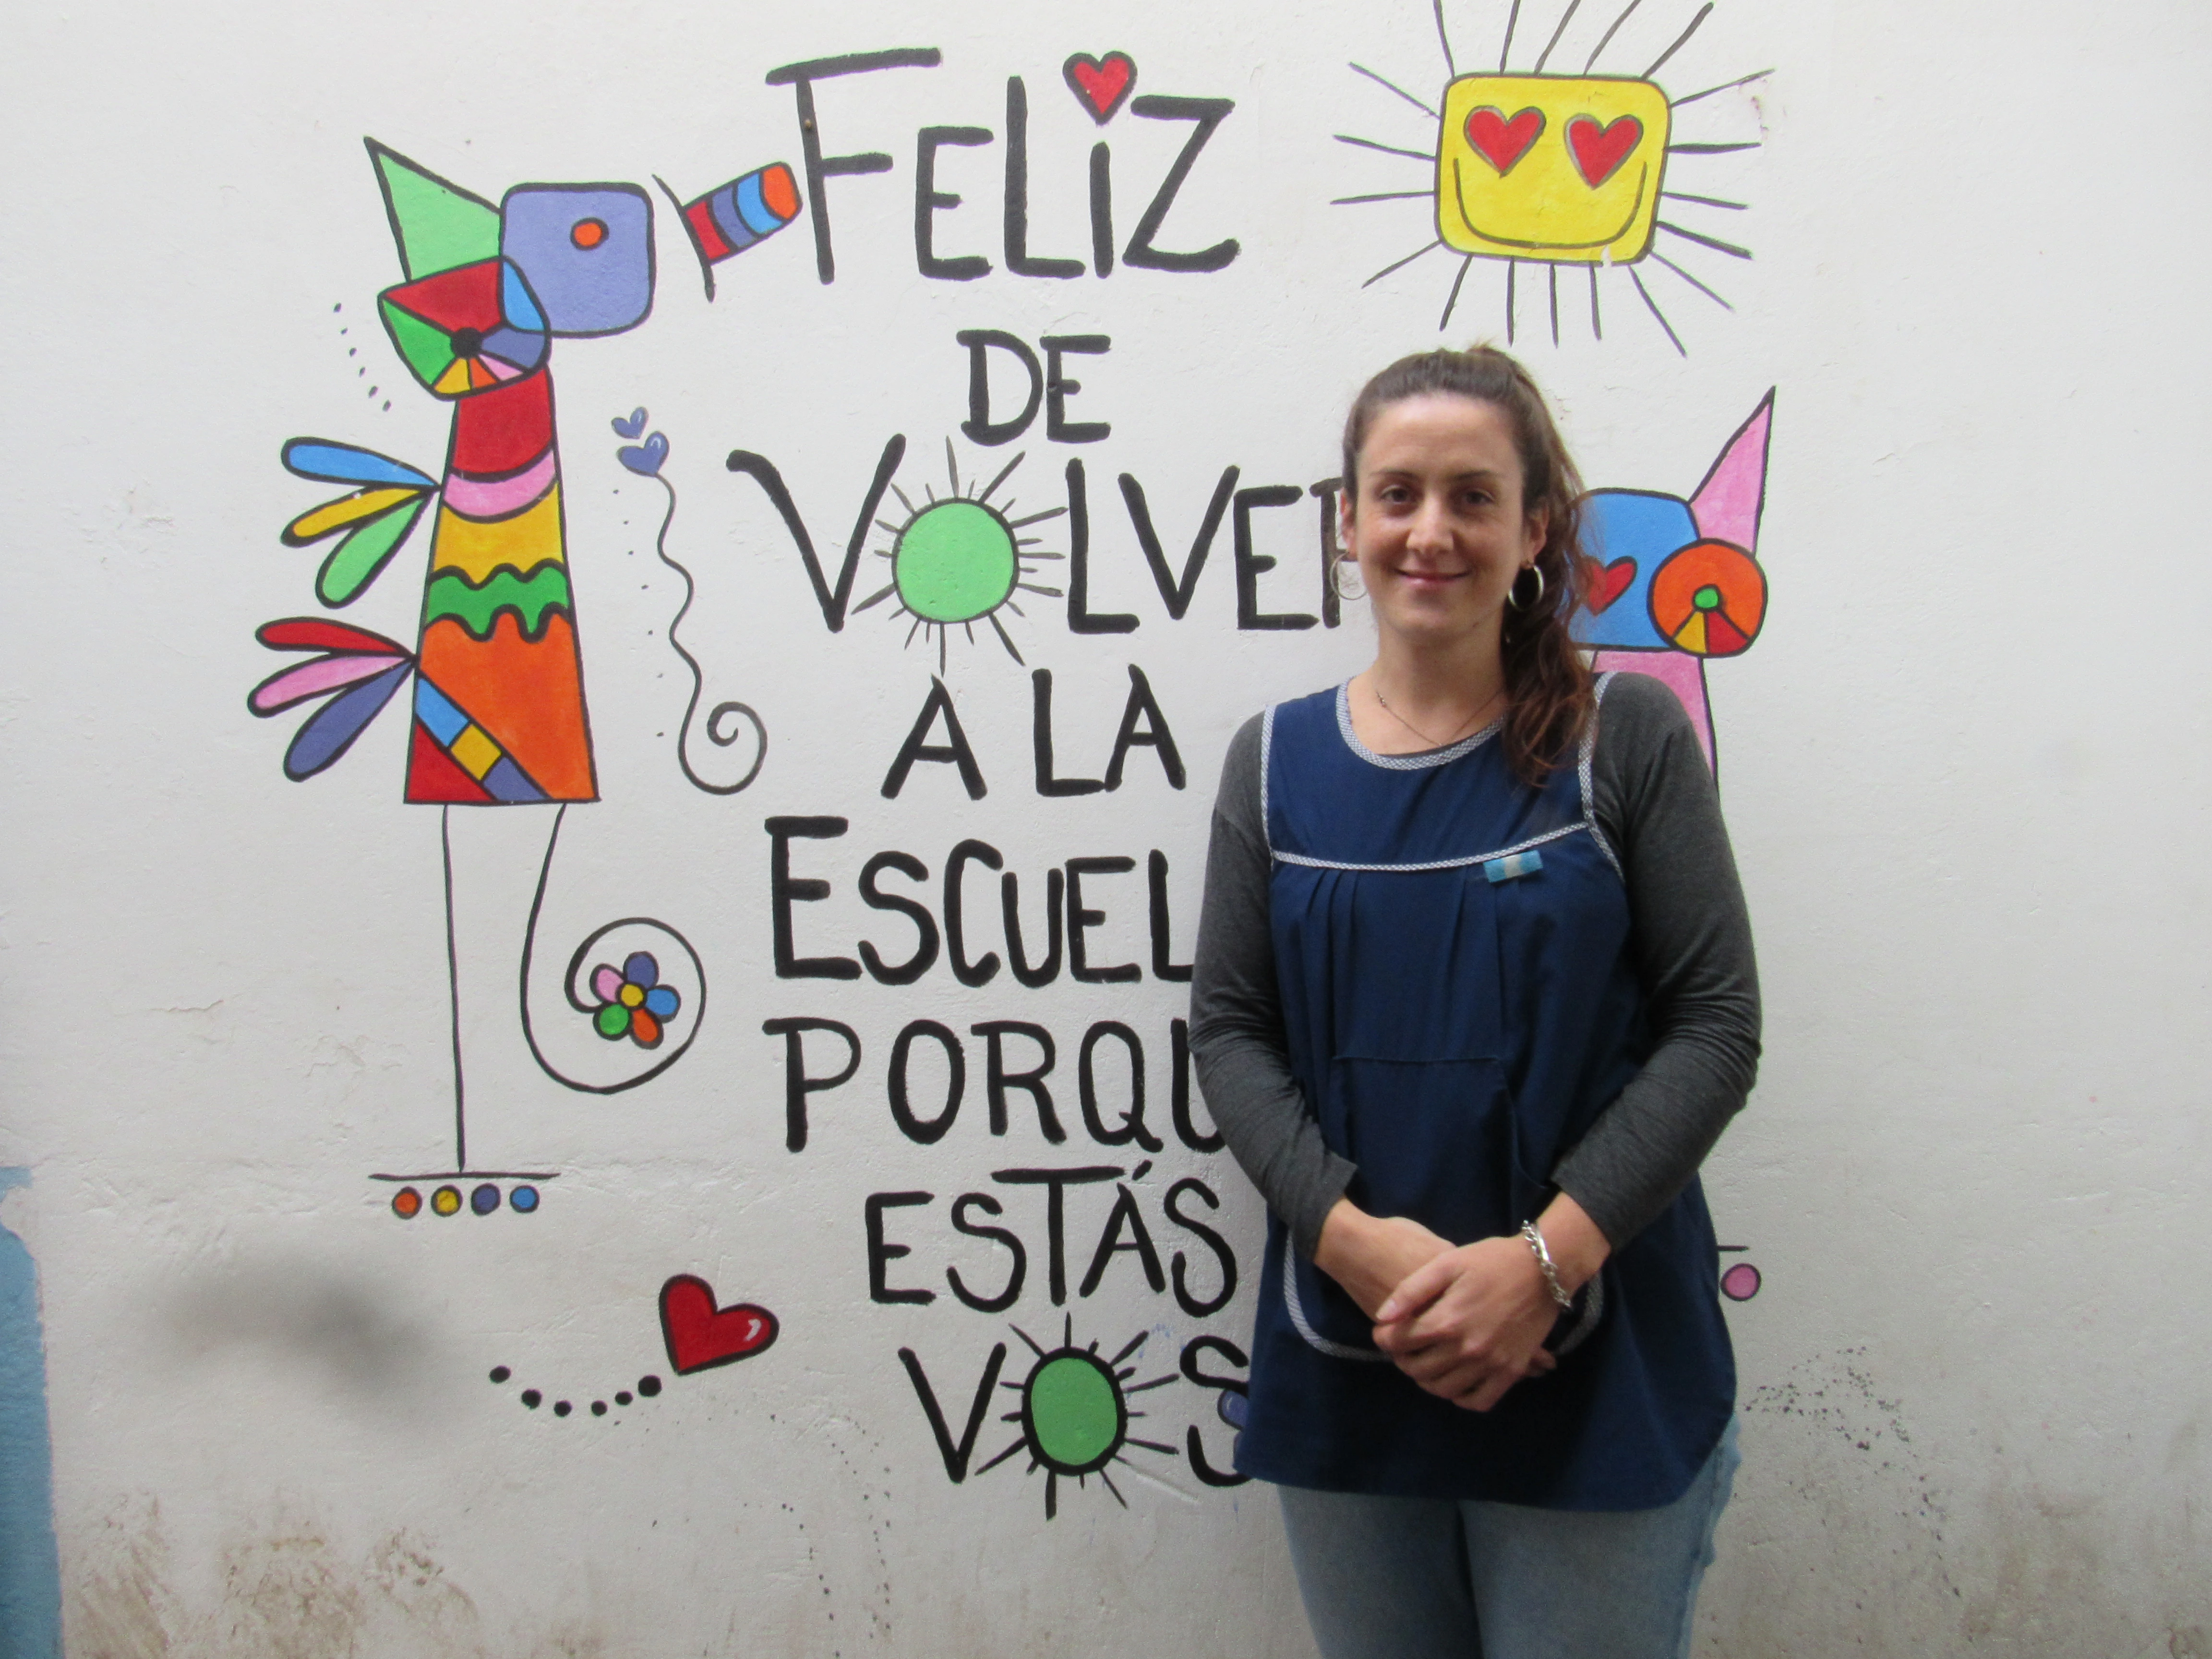 FELIZ
DE
VOLVER
A LA
ESCUEL
PORQU
ESTÁS
VOS